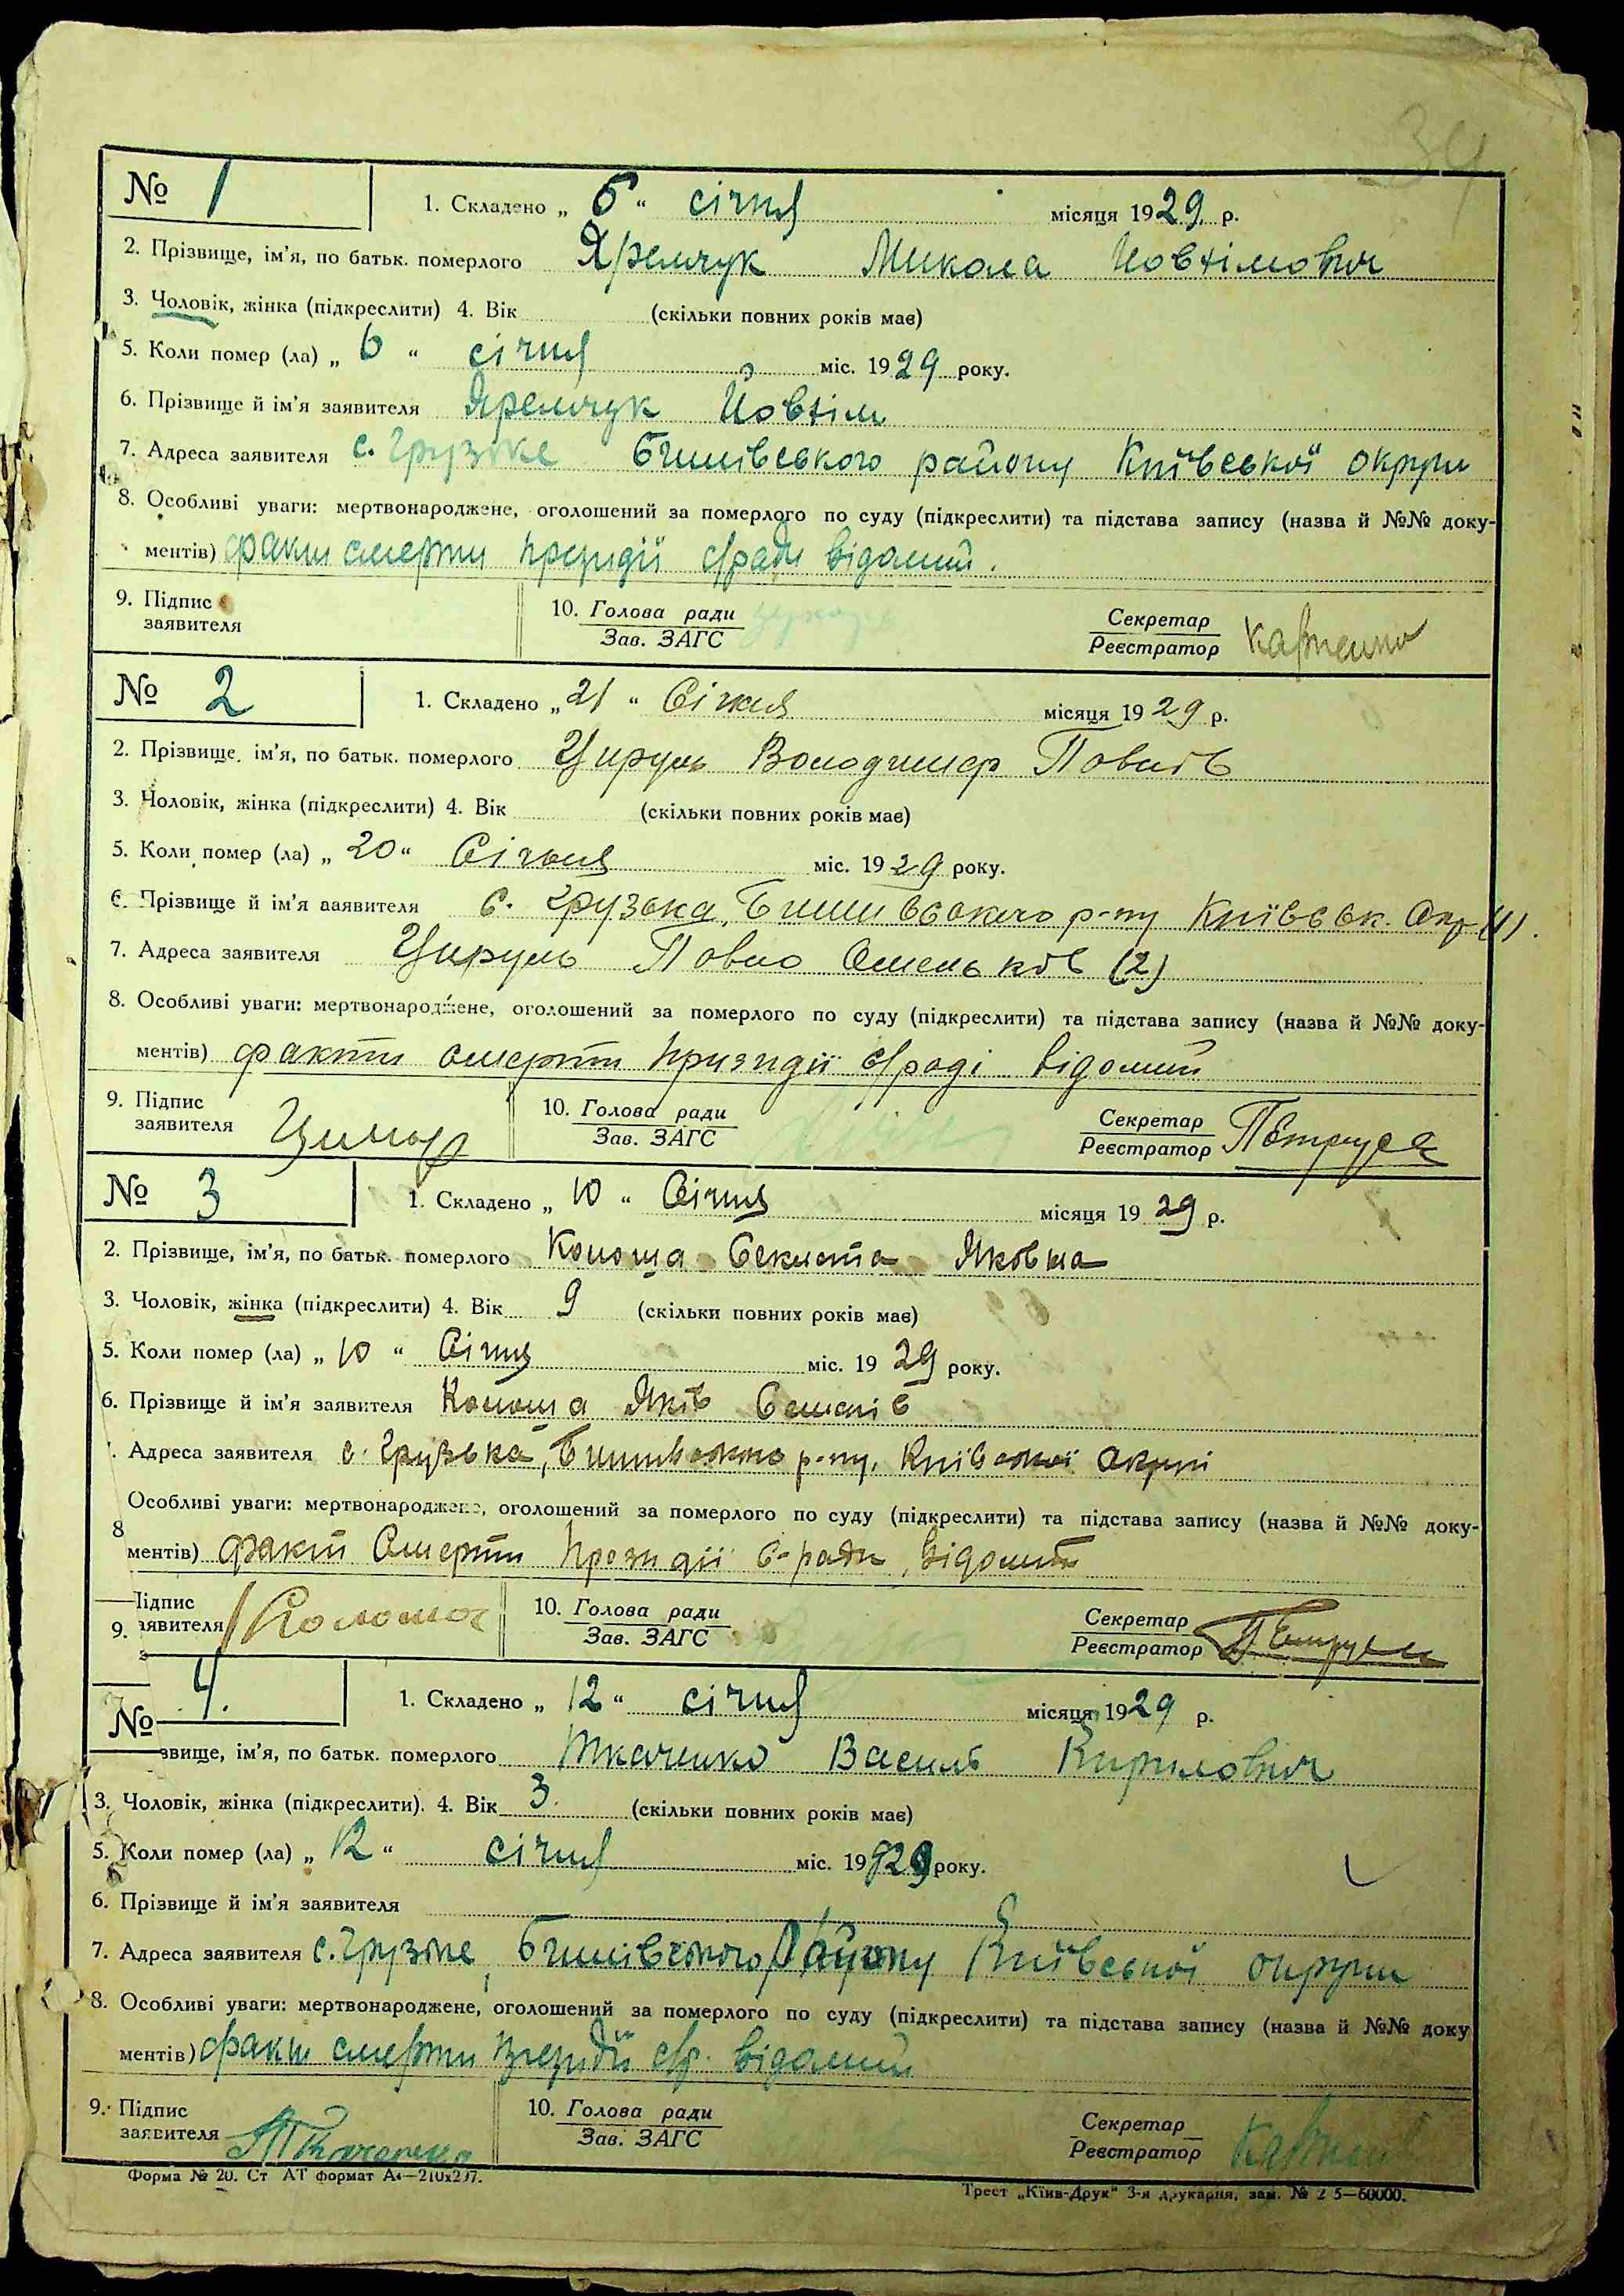 34
№ 1 1. Складено „ 6 “ січня місяця 1929 р.
2. Прізвище, ім’я, по батьк. померлого Яремчук Микола Йовтімович
3. Чоловік, жінка (підкреслити) 4. Вік (скільки повних років має)
5. Коли помер (ла) „ 6 “ січня міс. 1929 року.
6. Прізвище й ім’я заявителя Яремчук Йовтім
7. Адреса заявителя с. Грузьке Бишівського району Київської округи
8. Особливі уваги: мертвонароджене, оголошений за померлого по суду (підкреслити) та підстава запису (назва й №№ доку-
ментів) факт смерти президії с/ради відомий.
9. Підпис заявителя 10. Голова ради Зав. ЗАГС Секретар Реєстратор
№ 2 1. Складено „ 21 “ Січня місяця 1929 р.
2. Прізвище, ім’я, по батьк. померлого Цируль Володимер Повлів
3. Чоловік, жінка (підкреслити) 4. Вік (скільки повних років має)
5. Коли помер (ла) „ 20 “ Січня міс. 1929 року.
6. Прізвище й ім’я заявителя с. Грузька, Бишівського р-ну Київськ. Окр (1).
7. Адреса заявителя Цируль Повло Омельков (2)
8. Особливі уваги: мертвонароджене, оголошений за померлого по суду (підкреслити) та підстава запису (назва й №№ доку-
ментів) факти смерти призидії с/раді відомий
9. Підпис заявителя 10. Голова ради Зав. ЗАГС Секретар Реєстратор
№ 3 1. Складено „ 10 “ Січня місяця 1929 р.
2. Прізвище, ім’я, по батьк. померлого Яковна
3. Чоловік, жінка (підкреслити) 4. Вік 9 (скільки повних років має)
5. Коли помер (ла) „ 10 “ Січня міс. 1929 року.
6. Прізвище й ім’я заявителя Яків
7. Адреса заявителя с. Грузька, Бишівського р-ну, Київської округи
Особливі уваги: мертвонароджене, оголошений за померлого по суду (підкреслити) та підстава запису (назва й №№ доку-
8
ментів) факт Смерти Президії С-ради, відомий
9. Підпис заявителя 10. Голова ради Зав. ЗАГС Секретар Реєстратор
№ 4. 1. Складено „ 12 “ січня місяця 1929 р.
звище, ім’я, по батьк. померлого Ткаченко Василь Кирилович
3. Чоловік, жінка (підкреслити). 4. Вік 3. (скільки повних років має)
5. Коли помер (ла) „ 12 “ січня міс. 19929 року.
6. Прізвище й ім’я заявителя
7. Адреса заявителя с. Грузьке, Бишівського Району Київської округи
8. Особливі уваги: мертвонароджене, оголошений за померлого по суду (підкреслити) та підстава запису (назва й №№ доку
ментів) факт смерти президії с/р. відомий
9. Підпис заявителя Ткаченко 10. Голова ради Зав. ЗАГС Секретар Реєстратор
Форма № 20. Ст АТ формат А4—210х297.
Трест „Київ-Друк“ 3-я друкарня, зам. № 2 5—60000.